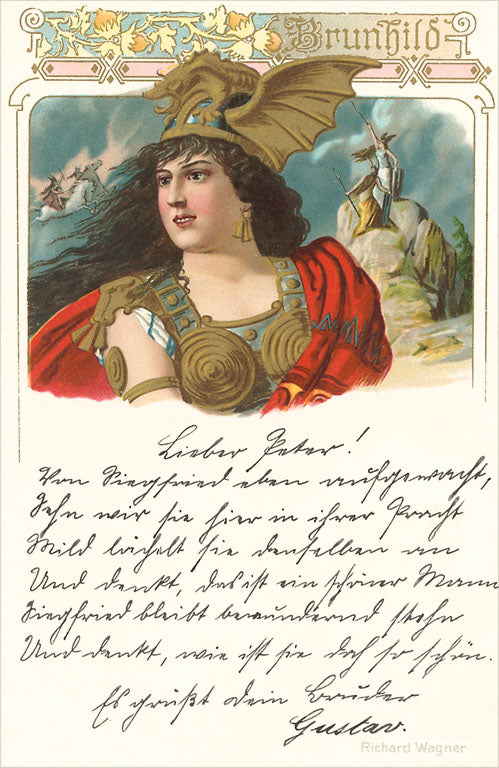 Brunhild
Lieber Peter!
Von Siegfried eben aufgewacht,
Sehn wir sie hier in ihrer Pracht
Mild lächelt sie denselben an
Und denkt, das ist ein schöner Mann
Siegfried bleibt bewundernd stehn
Und denkt, wie ist sie doch so schön.
Es grüßt Dein Bruder
Gustav.
Richard Wagner